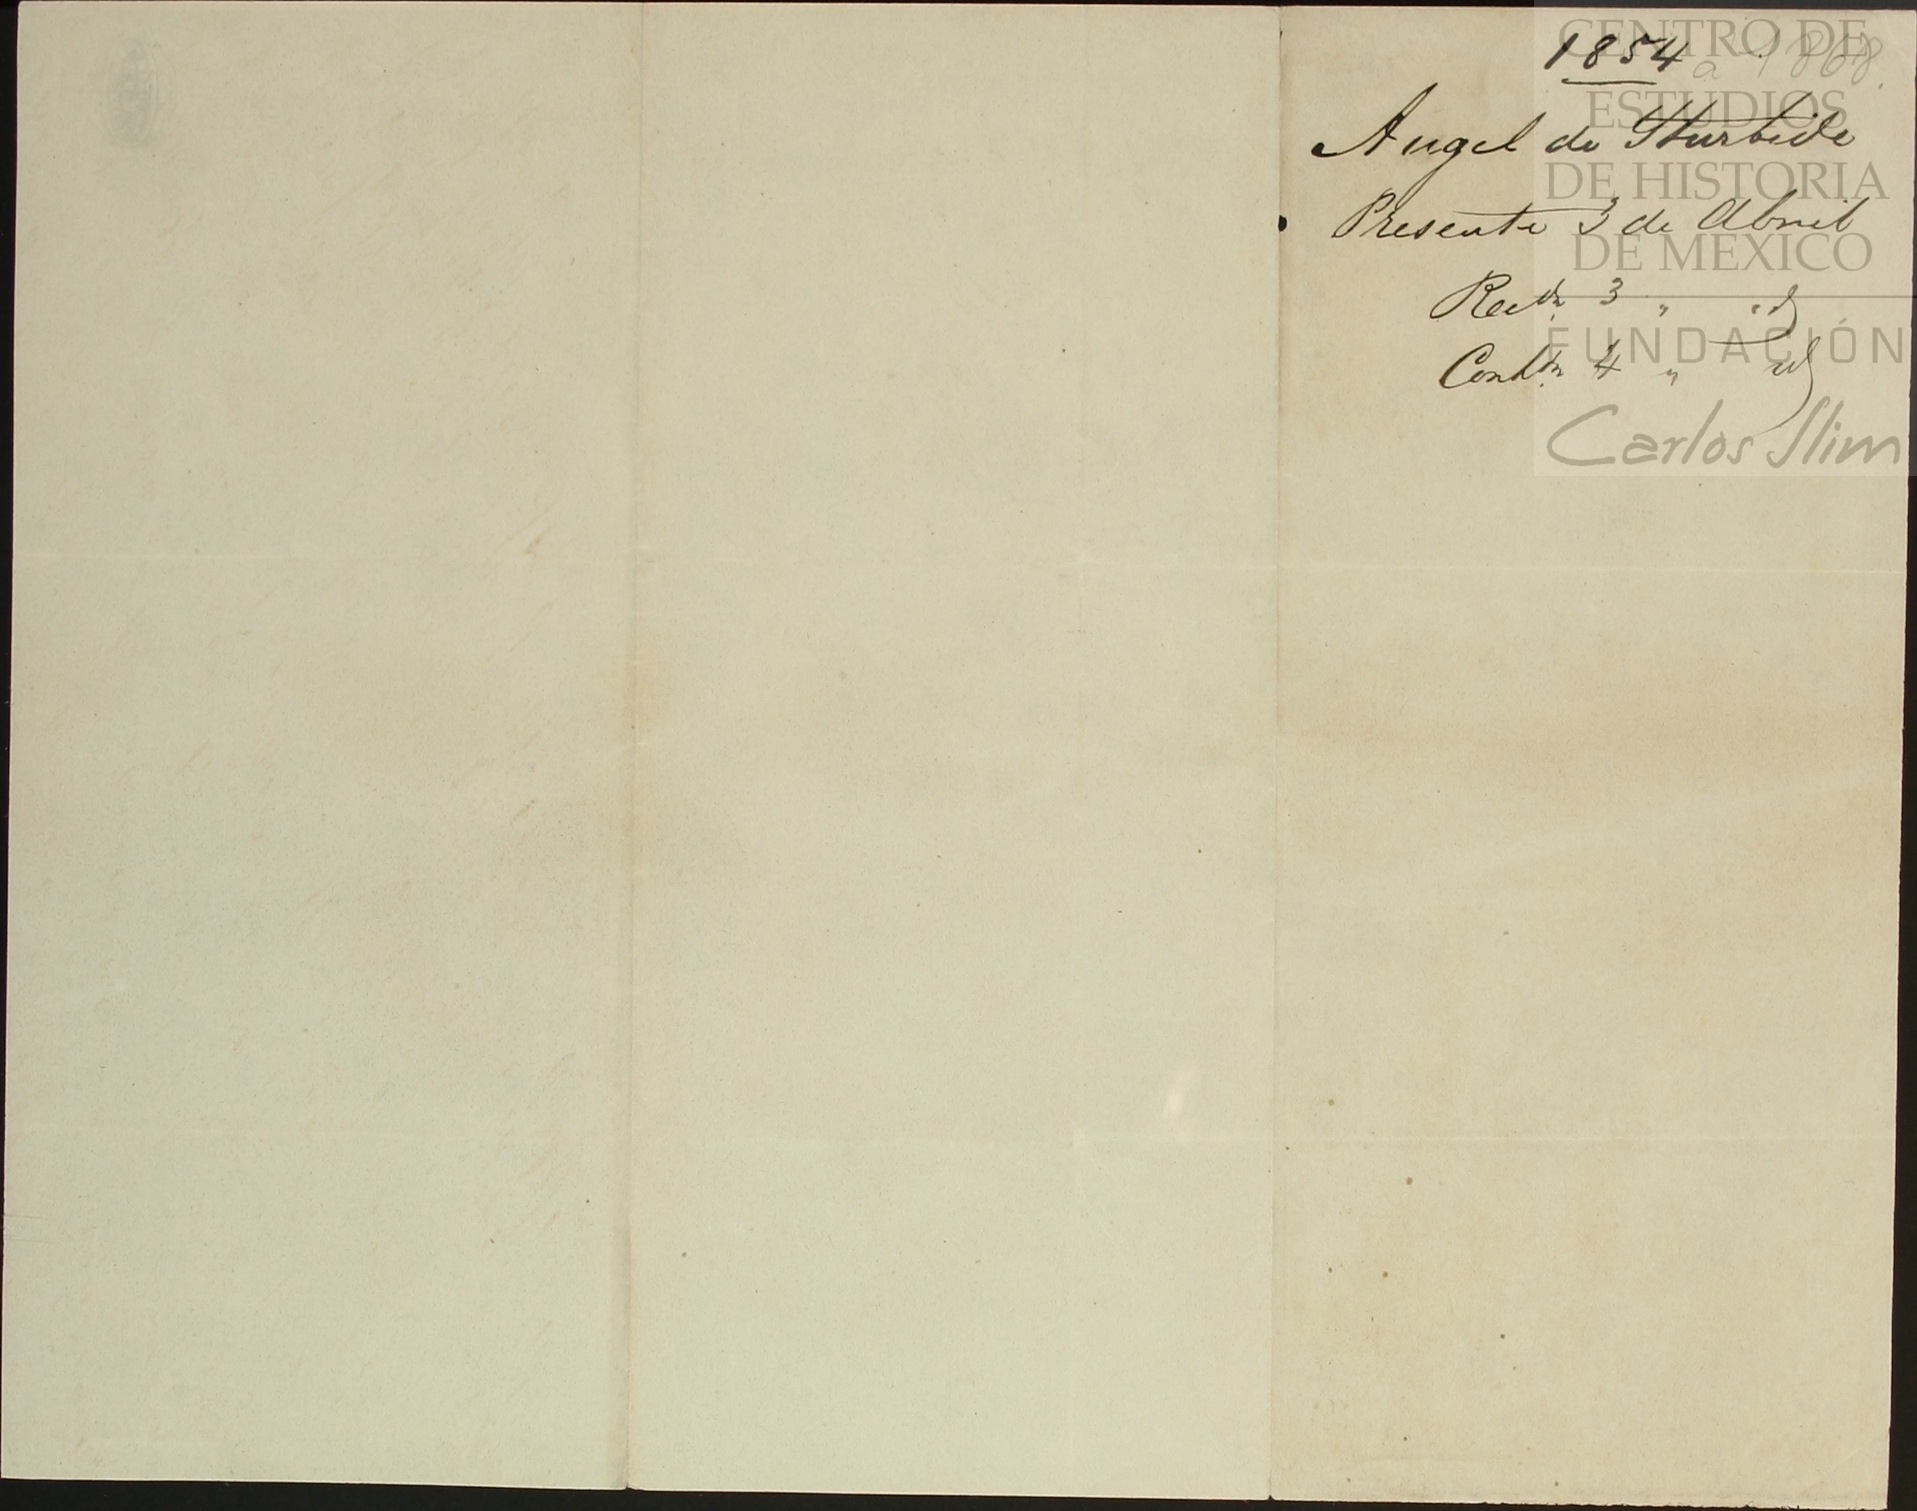 1854 a 1868.
Angel de Yturbide
Presente 3 de Abril
Recda. 3 " " id
Contda. 4 " id
CENTRO DE
ESTUDIOS
DE HISTORIA
DE MEXICO
FUNDACIÓN
Carlos Slim